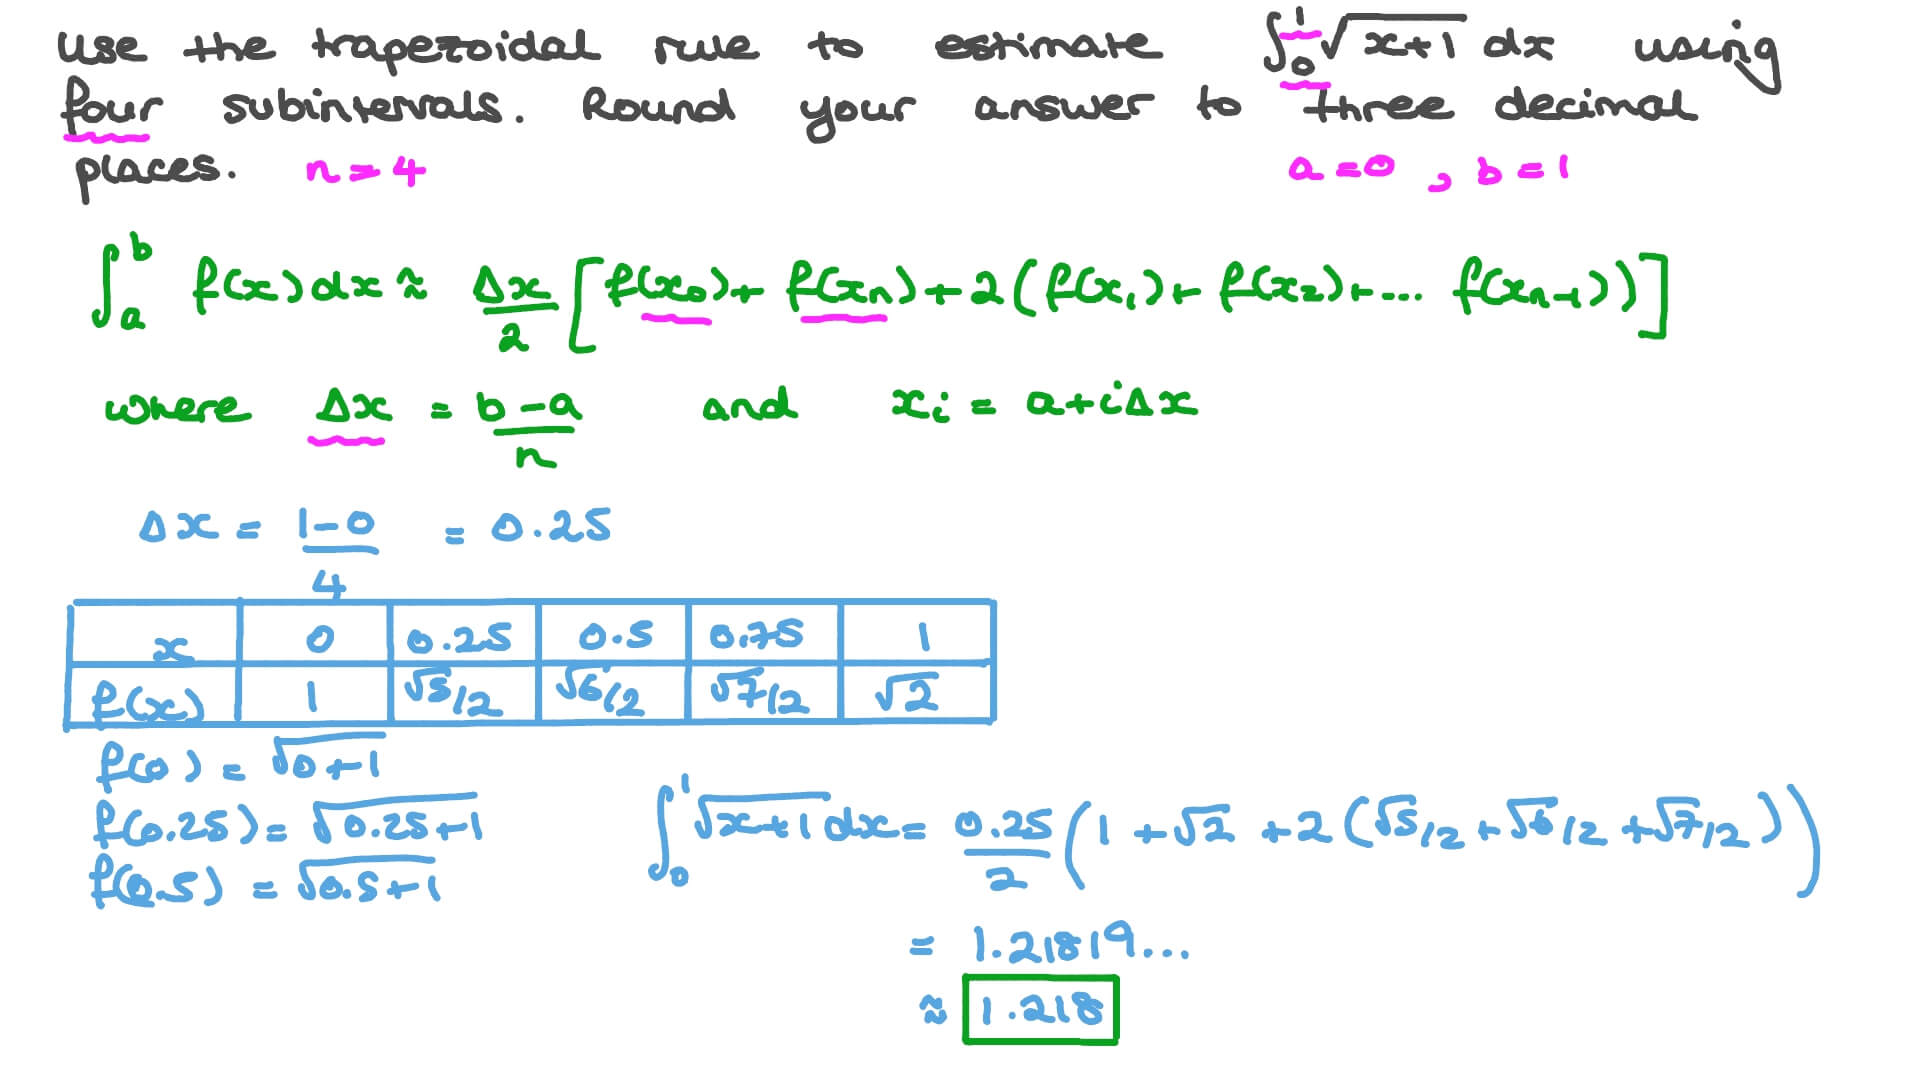 use the trapezoidal rule to estimate ∫₀¹ √(x+1) dx using
four subintervals. Round your answer to three decimal
places. n = 4 a = 0 , b = 1
∫ₐᵇ f(x)dx ≈ Δx/2 [f(x₀) + f(xₙ) + 2(f(x₁) + f(x₂) + ... f(xₙ₋₁))]
where Δx = (b-a)/n and xᵢ = a+iΔx
Δx = (1-0)/4 = 0.25
x 0 0.25 0.5 0.75 1
f(x) 1 √5/2 √6/2 √7/2 √2
f(0) = √(0+1)
f(0.25) = √(0.25+1)
f(0.5) = √(0.5+1)
∫₀¹ √(x+1) dx = 0.25/2 (1 + √2 + 2(√5/2 + √6/2 + √7/2))
= 1.21819...
≈ 1.218